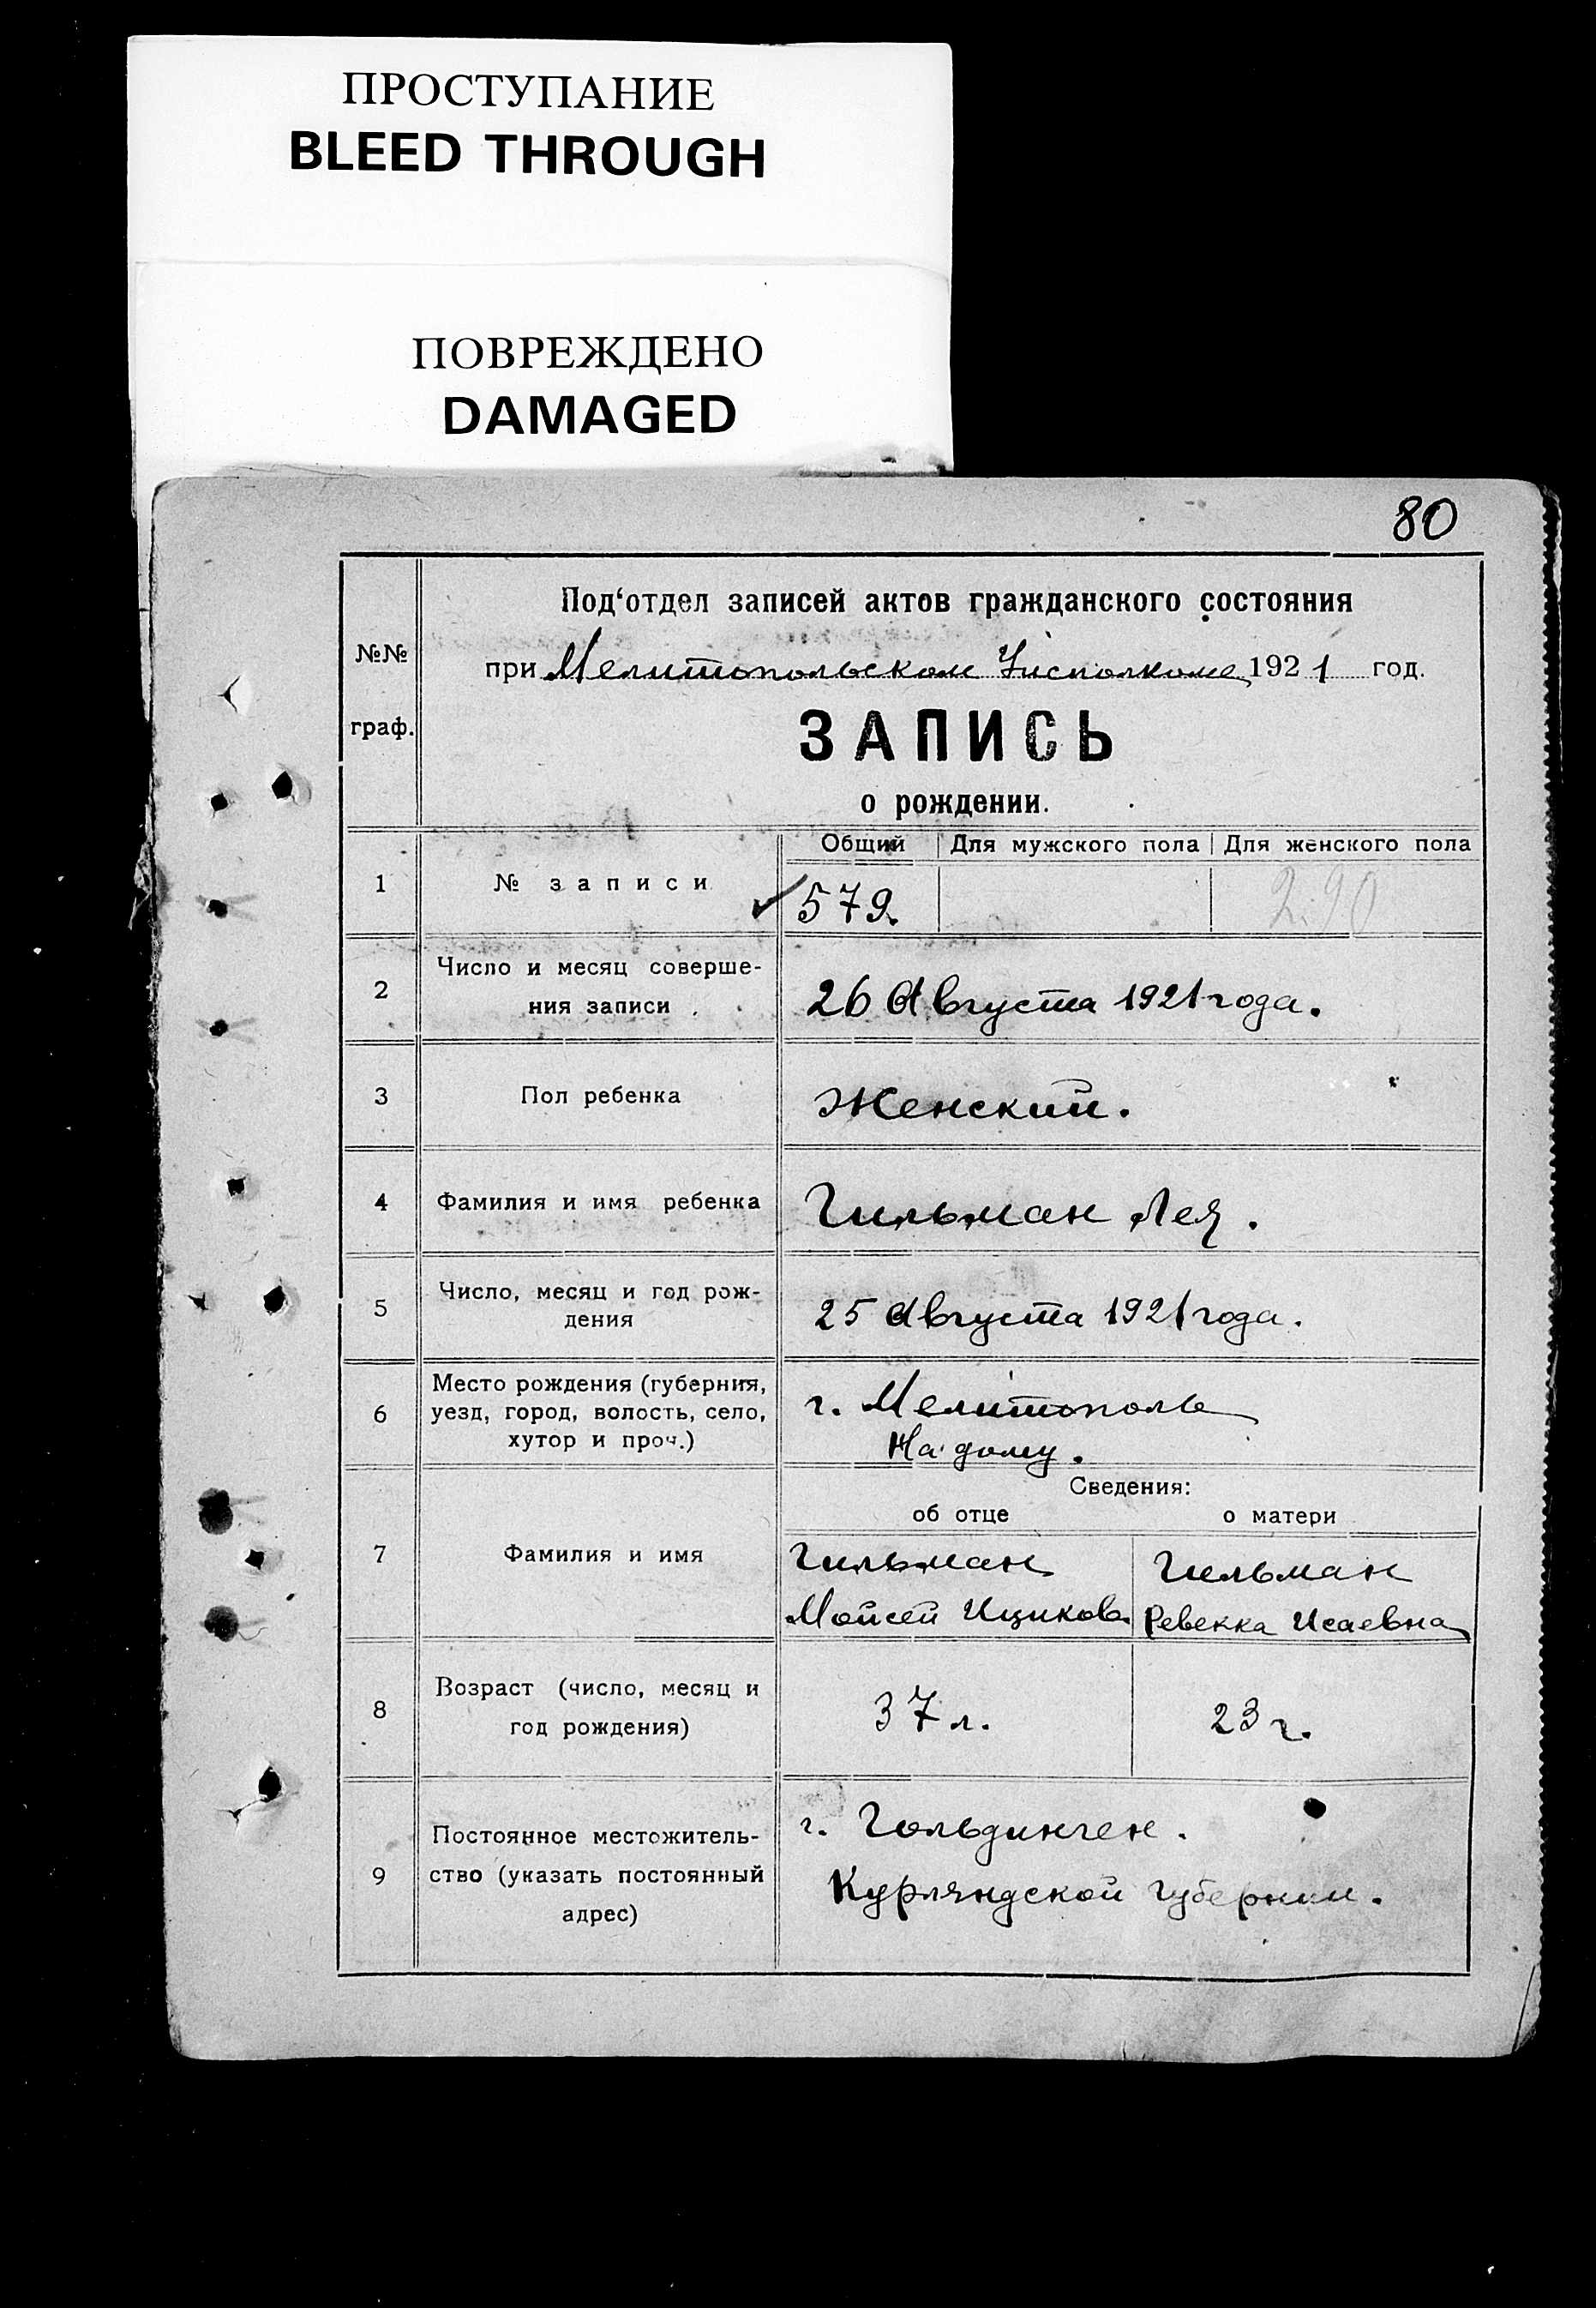 ПРОСТУПАНИЕ
BLEED THROUGH
ПОВРЕЖДЕНО
DAMAGED
80
№№
граф.
Под‘отдел записей актов гражданского состояния
при Мелитопольском Уисполкоме 1921 год.
ЗАПИСЬ
о рождении.
1
№ записи
Общий Для мужского пола Для женского пола
579. 290
2
Число и месяц соверше-
ния записи
26 Августа 1921 года.
3
Пол ребенка
Женский.
4
Фамилия и имя ребенка
Гильман Лея.
5
Число, месяц и год рож-
дения
25 Августа 1921 года.
6
Место рождения (губерния,
уезд, город, волость, село,
хутор и проч.)
г. Мелитополь
На дому.
Сведения:
об отце о матери
7
Фамилия и имя
Гильман
Мойсей Ициков.
Гильман
Ревекка Исаевна
8
Возраст (число, месяц и
год рождения)
37 л. 23 г.
9
Постоянное местожитель-
ство (указать постоянный
адрес)
г. Гольдинген.
Курляндской губернии.